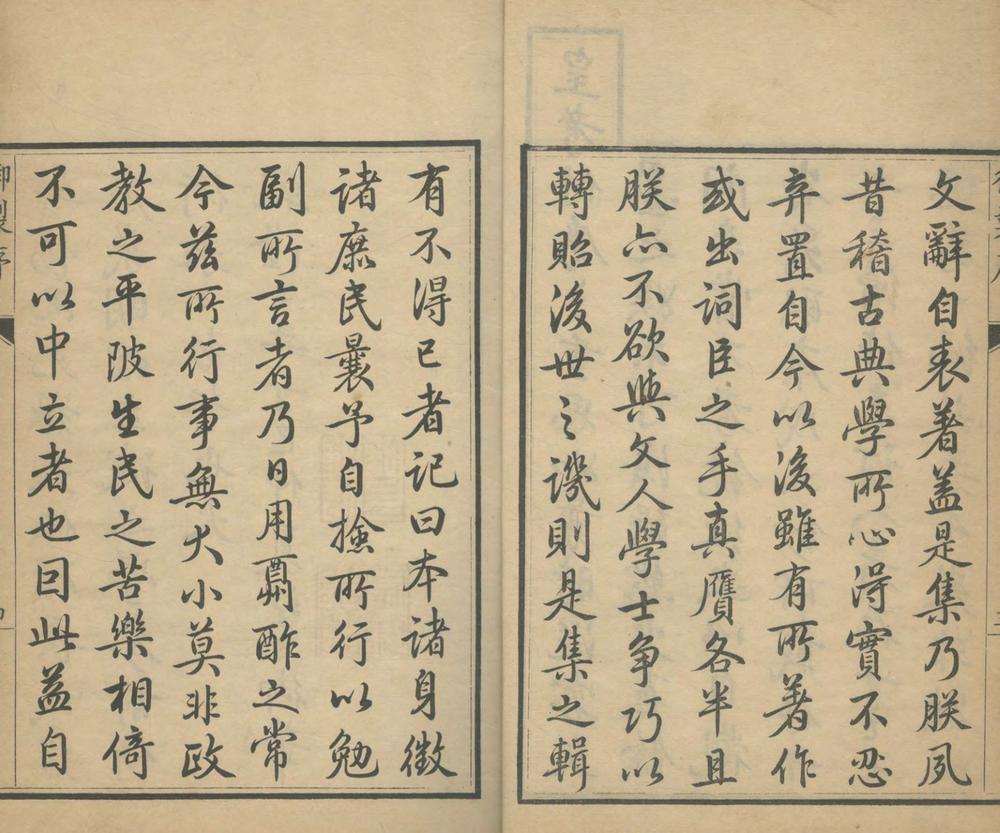 文辭自表著蓋是集乃朕夙
昔稽古典學所心得實不忍
弃置自今以後雖有所著作
或出詞臣之手真贋各半且
朕亦不欲與文人學士争巧以
轉貽後世之譏則是集之輯
有不得已者記曰本諸身徵
諸庶民曩予自撿所行以勉
副所言者乃日用酬酢之常
今茲所行事無大小莫非政
教之平陂生民之苦樂相倚
不可以中立者也因此益自
御製序